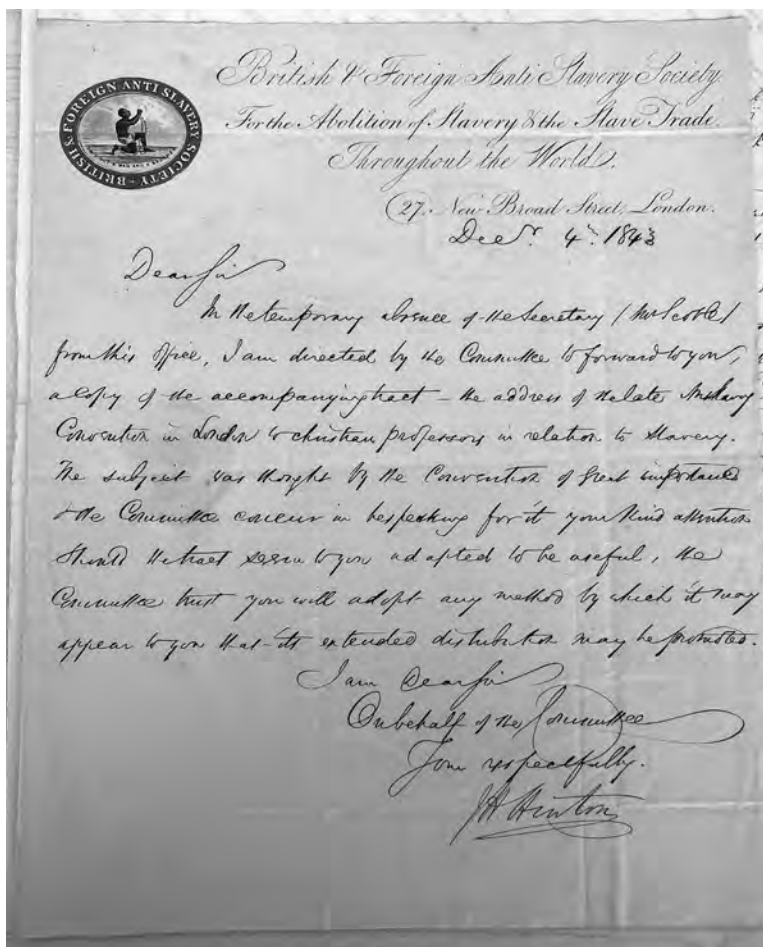 British & Foreign Anti Slavery Society
For the Abolition of Slavery & the Slave Trade
Throughout the World.
27. New Broad Street, London.
BRITISH & FOREIGN ANTI SLAVERY SOCIETY
Decr. 4th. 1843
Dear Sir
In the temporary absence of the Secretary (Mr Scoble)
from this Office, I am directed by the Committee to forward to you,
a Copy of the accompanying tract – the address of the late Antislavery
Convention in London to christian professors in relation to Slavery.
The subject was thought by the Convention of great importance
& the Committee concur in bespeaking for it your kind attention
Should the tract seem to you adapted to be useful, the
Committee trust you will adopt any method by which it may
appear to you that its extended distribution may be promoted.
I am Dear Sir
On behalf of the Committee
Yours respectfully.
J H Hinton